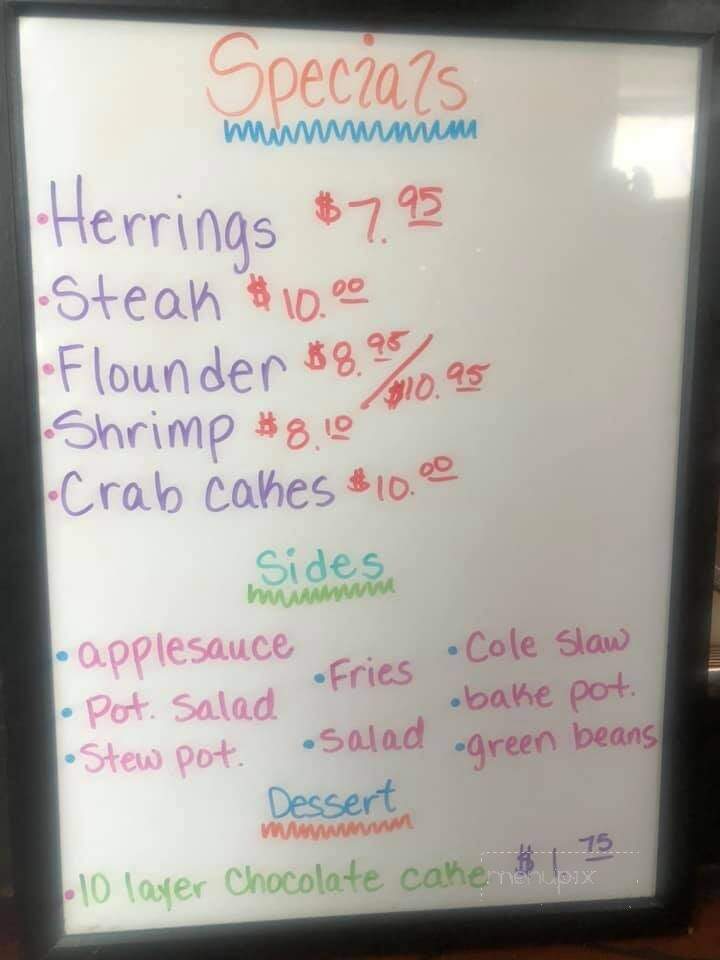 Specials
•Herrings $7.95
•Steak $10.00
•Flounder $8.95/$10.95
•Shrimp $8.10
•Crab cakes $10.00
Sides
•applesauce
•Pot. Salad
•Stew pot.
•Fries
•Salad
•Cole Slaw
•bake pot.
•green beans
Dessert
•10 layer Chocolate cake $1.75
menupix